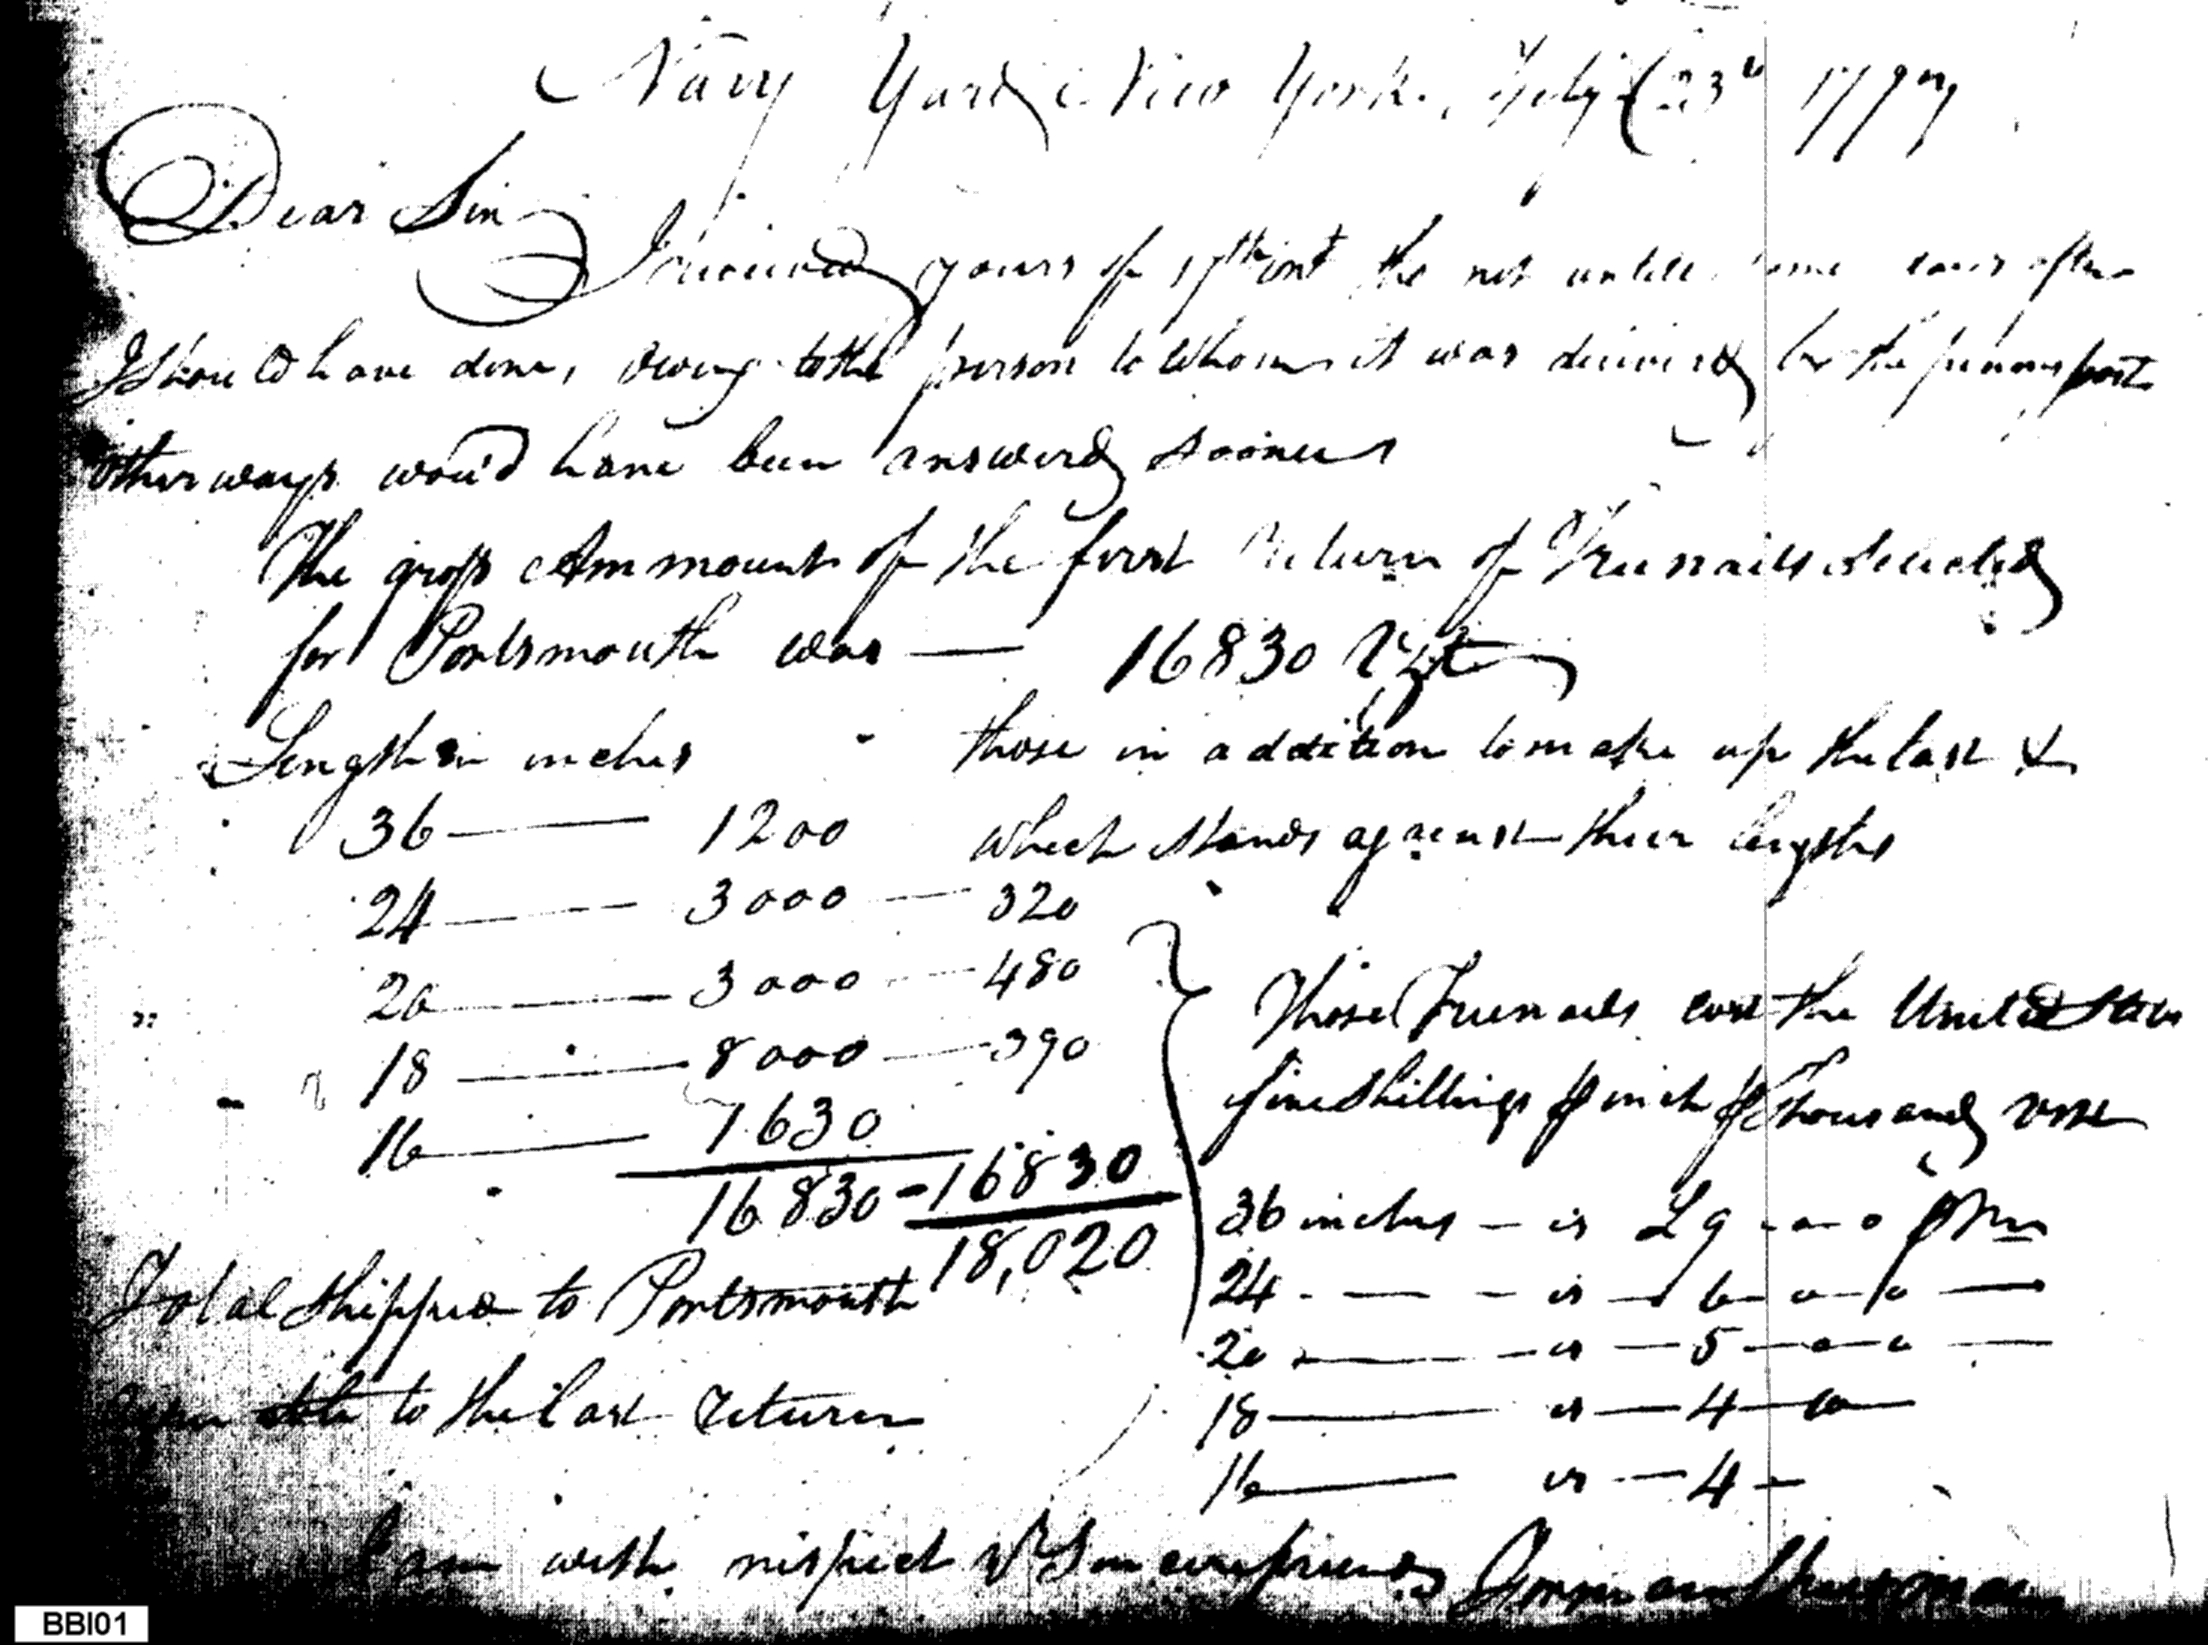 Navy Yard New York, July 23d 1797
Dear Sir
I received yours of 17th inst tho not untill some days after
I should have done, owing to the person to whom it was delivered by the post
otherways would have been answerd sooner
The gross Ammount of the first Return of Treenails selected
for Portsmouth was — 16830 Vizt
Length in inches those in addition to make up the last &
36 — 1200 which stands against their lengths
24 — 3000 — 320
20 — 3000 — 480
18 — 8000 — 390
16 — 1630
16830 - 16830
18,020
Total shipped to Portsmouth
to the last return
Those Treenails cost the United States
five shillings p inch p thousand vizt
36 inches — is £ 9 - o - o p M
24 - — - is — 6 - o - o —
20 — - is — 5 — o — o —
18 — is — 4 — 10 —
16 — is — 4 -
I am with respect Yr Sincere friend